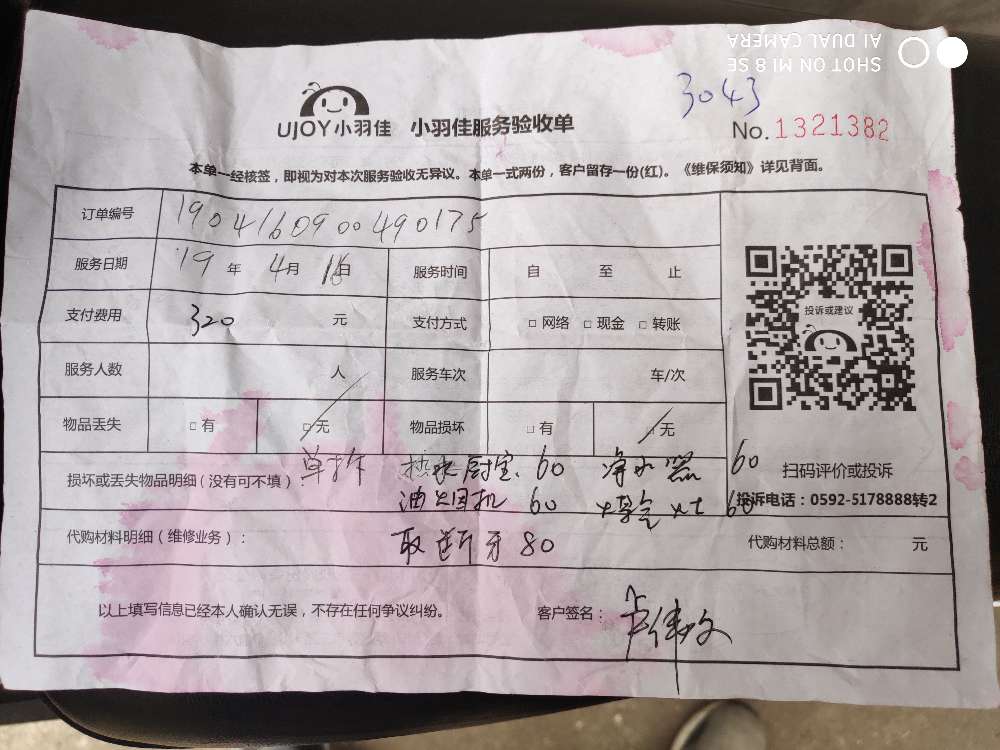 SHOT ON MI 8 SE
AI DUAL CAMERA
3043
UJOY小羽佳 小羽佳服务验收单
No. 1321382
本单一经核签，即视为对本次服务验收无异议。本单一式两份，客户留存一份(红)。《维保须知》详见背面。
订单编号 190416090 0490175
服务日期 19 年 4月 16日 服务时间 自 至 止
投诉或建议
支付费用 320 元 支付方式 □ 网络 □ 现金 □ 转账
服务人数 人 服务车次 车/次
物品丢失 □ 有 □ 无 物品损坏 □ 有 无
损坏或丢失物品明细（没有可不填） 单拆 热水厨宝、60 净水器 60
扫码评价或投诉
油烟机 60 燃气灶 60
投诉电话：0592-5178888转2
代购材料明细（维修业务）： 取断牙 80 代购材料总额： 元
以上填写信息已经本人确认无误，不存在任何争议纠纷。 客户签名：